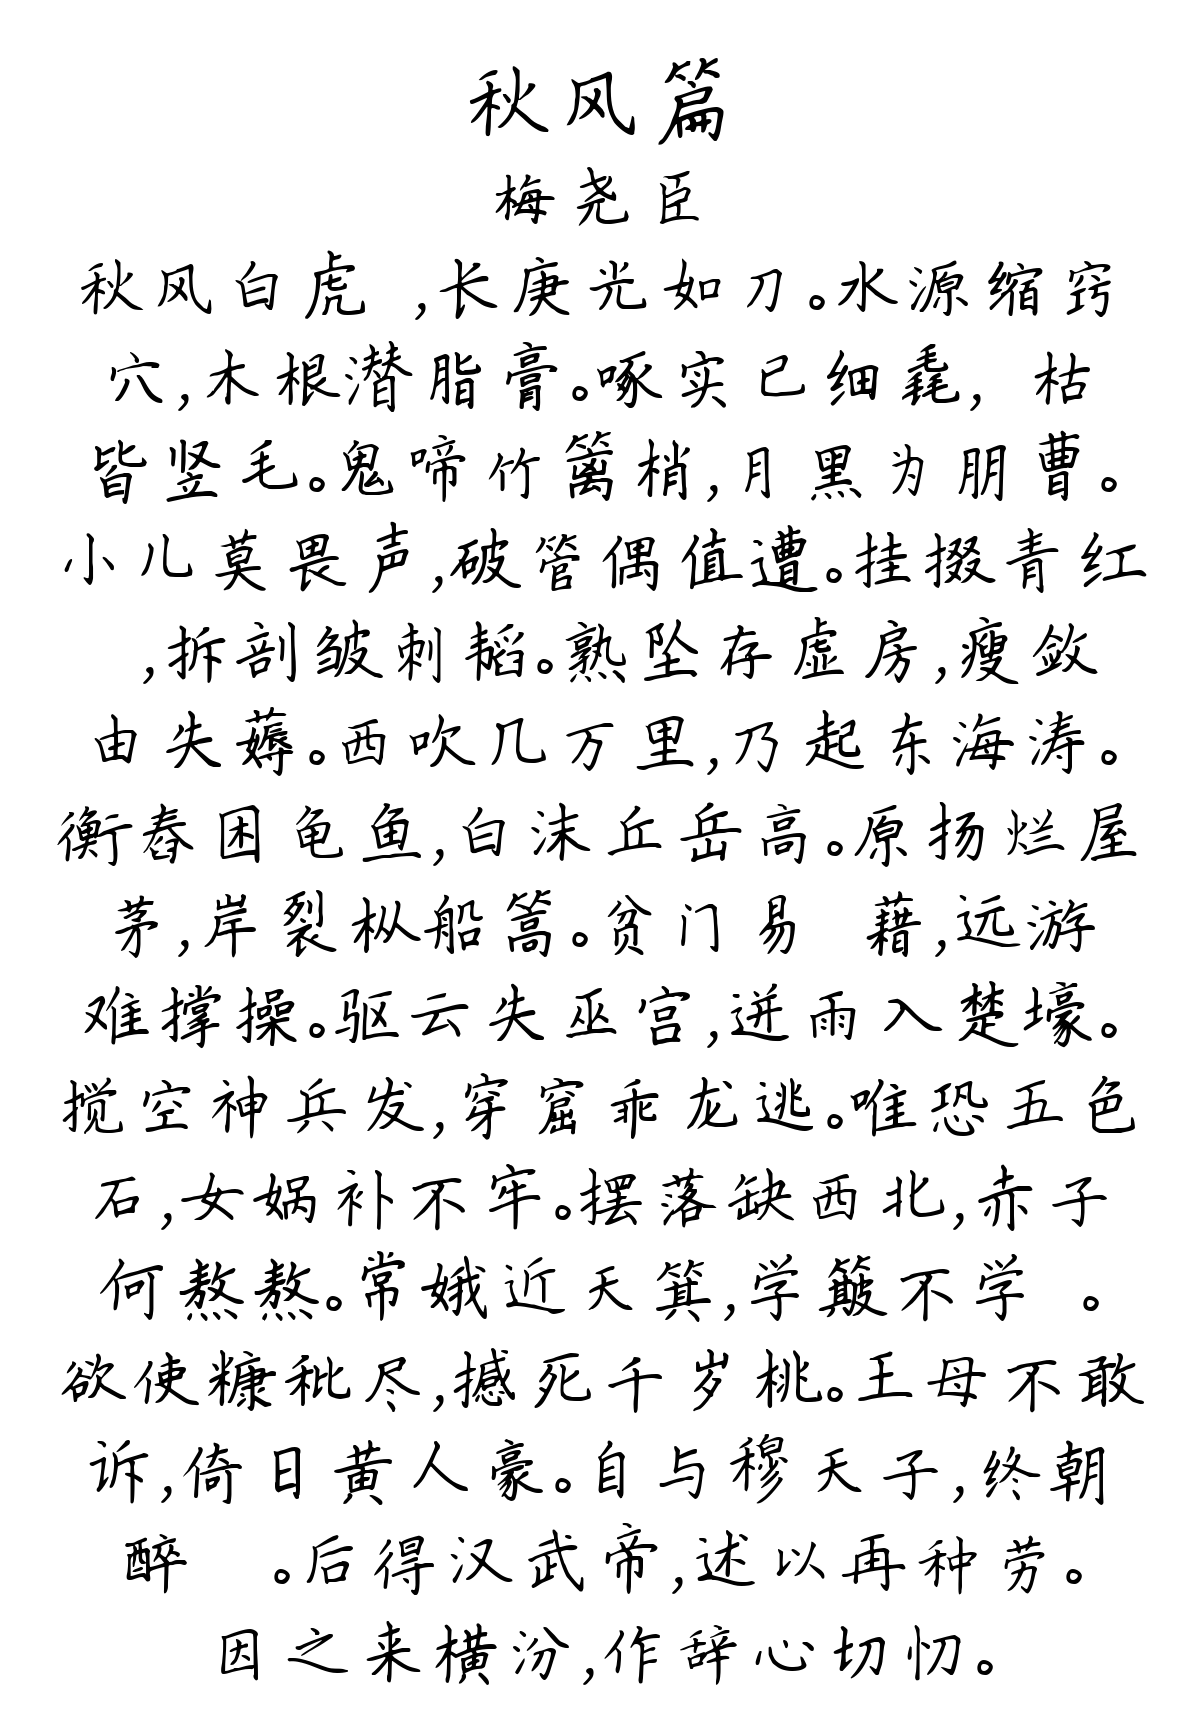 秋风篇
梅尧臣
秋风白虎 ,长庚光如刀。水源缩窍
穴,木根潜脂膏。啄实已细毳, 枯
皆竖毛。鬼啼竹篱梢,月黑为朋曹。
小儿莫畏声,破管偶值遭。挂掇青红
,拆剖皱刺韬。熟坠存虚房,瘦敛
由失薅。西吹几万里,乃起东海涛。
衡舂困龟鱼,白沫丘岳高。原扬烂屋
茅,岸裂枞船篙。贫门易 藉,远游
难撑操。驱云失巫宫,迸雨入楚壕。
搅空神兵发,穿窟乖龙逃。唯恐五色
石,女娲补不牢。摆落缺西北,赤子
何熬熬。常娥近天箕,学簸不学 。
欲使糠秕尽,撼死千岁桃。王母不敢
诉,倚日黄人豪。自与穆天子,终朝
醉 。后得汉武帝,述以再种劳。
因之来横汾,作辞心切忉。